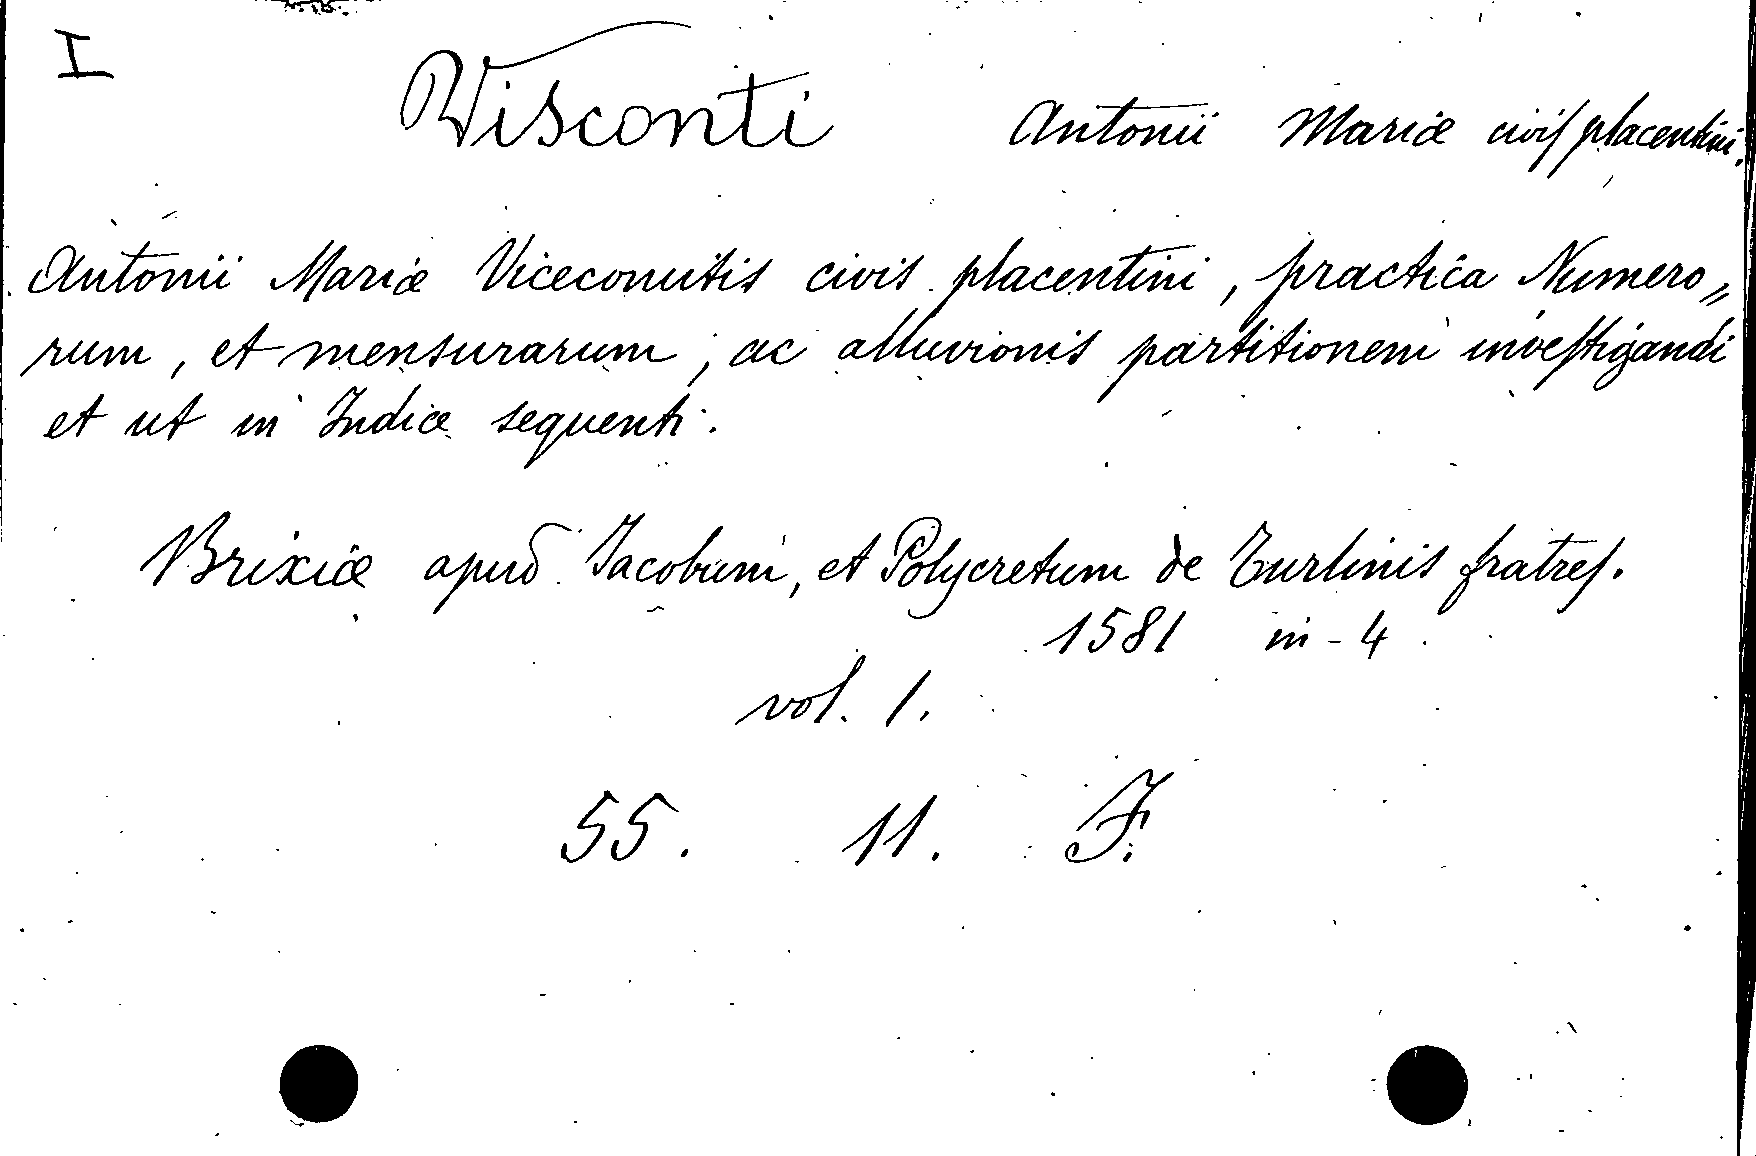 I
Visconti Antonii Mariæ civis placentini.
Antonii Mariæ Vicecomitis civis placentini, practica Numero„
rum, et mensurarum, ac alluvionis partitionem investigandi
et ut in Indice sequenti.
Brixiæ apud Jacobum, et Polycretum de Turlinis fratres.
1581 in-4.
vol. 1.
55. 11. F.